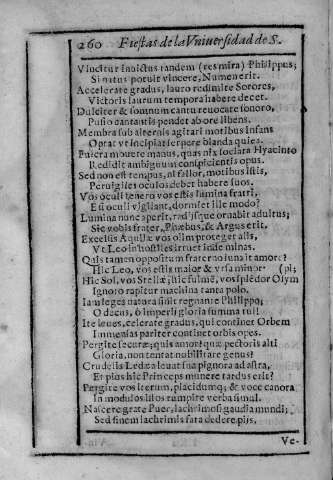 260 Fiestas de la Vniuersidad de S.
Vincitur inuictus tandem (res mira) Philippus;
Si natus potuit vincere, Numen erit.
Accelerate gradus, lauro redimite Sorores,
Victoris laurum tempora habere decet.
Dulciter & somnum cantu reuocate sonoro,
Pusio cantantis pendet ab ore libens.
Membra sub alternis agitari motibus infans
Optat vt incipiat serpere blanda quies.
Puicra mouete manus, quas nix sociata Hyacinto
Reddidit ambiguum conspicientis opus.
Sed non est tempus, ni fallor, motibus istis,
Peruigiles oculos debet habere suos.
Vos oculi tenero vos estis lumina fratri,
Est oculi vigilant, dormiet ille modo?
Lumina nunc aperit, radijsque ornabit adultus;
Sic vobis frater, Phœbus, & Argus erit.
Excelsus Aquilæ vos olim proteget alis,
Vt Leo in hostiles irruet inde minas.
Quis tamen oppositum fraterno iunxit amore?
Hic Leo, vos estis maior & vrsa minor. (pi;
Hic Sol, vos Stellæ, hic fulmē, vos splēdor Olym
Ignoro rapitur machina tanta polo.
Iam leges natura sinit regnante Philippo;
O decus, ò imperij gloria summa tui!
Ite leues, celerate gradus, qui continet Orbem
Immensas pariter continet orbis opes.
Pergite securæ; quis amor? quæ pectoris alti
Gloria, non tentat nobilitare genus?
Crudelis Ledæa leuat sua pignora ad astra,
Et pius hic Princeps munere tardus erit?
Pergite vos iterum, placidumq; & voce canora
In modulos litos rumpire verba simul.
Nascere grate Puer, lachrimosi gaudia mundi;
Sed finem lachrimis fata dedere pijs,
Ve-